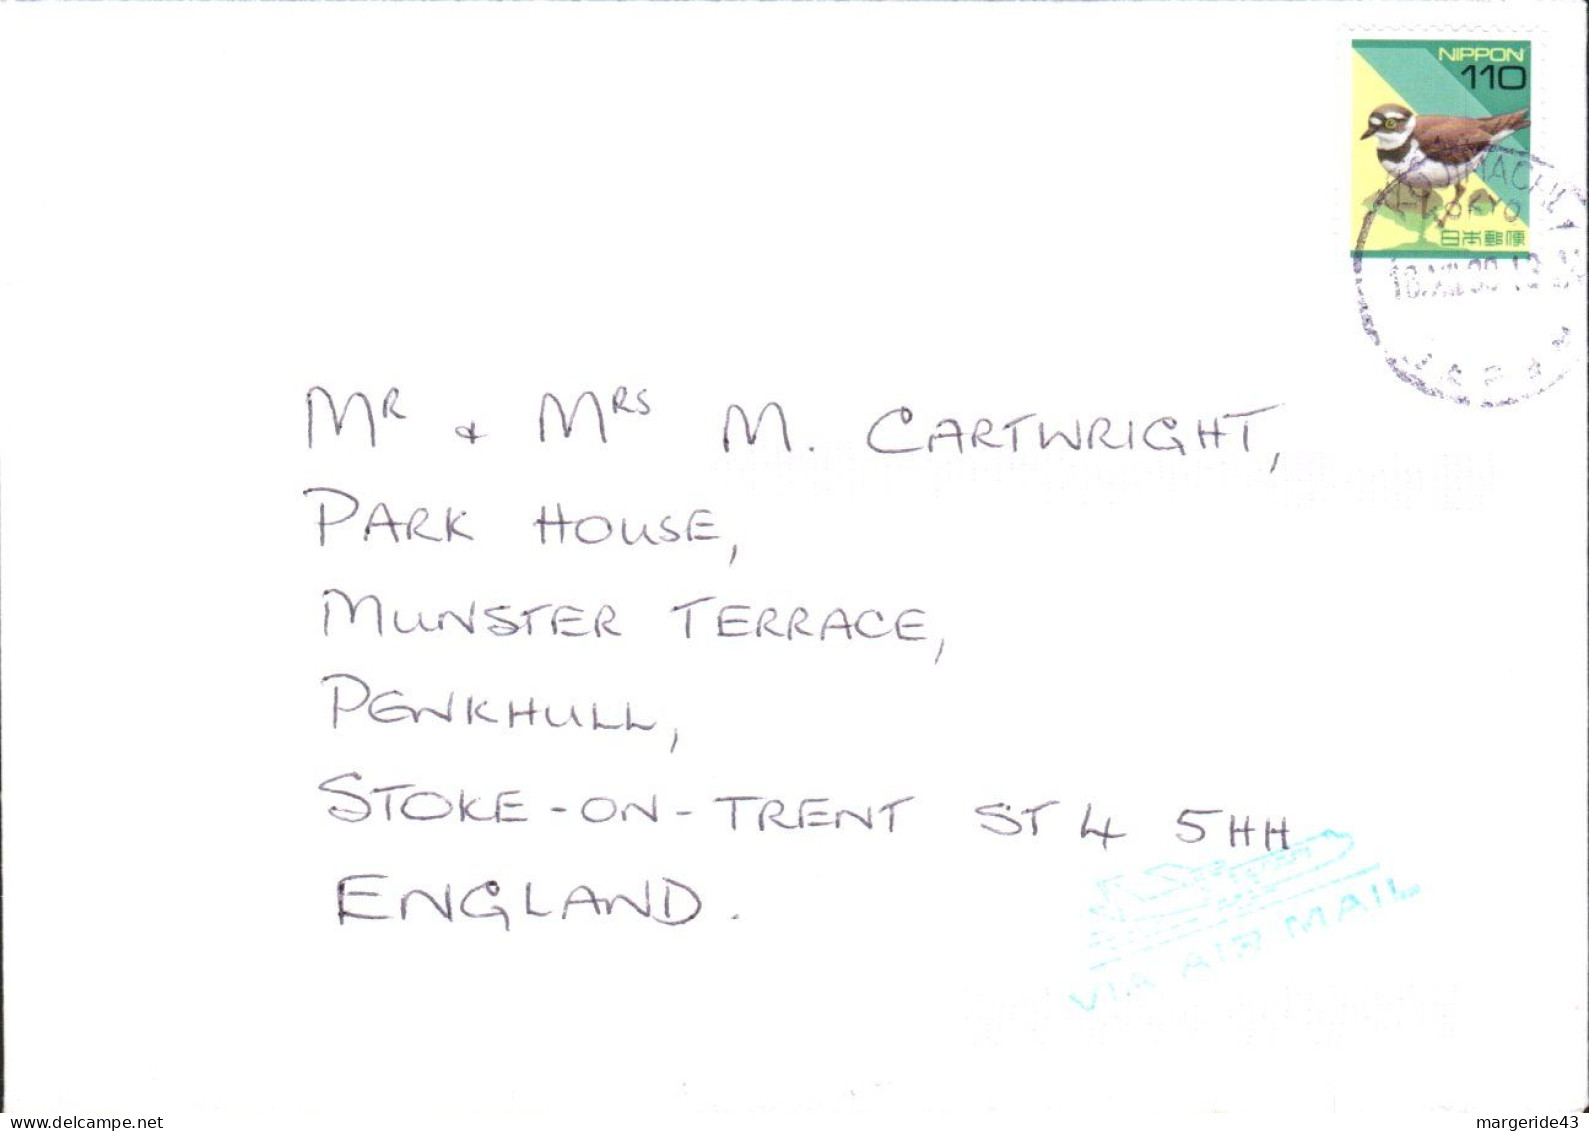 NIPPON
110
日本郵便
KOJIMACHI
TOKYO
JAPAN
MR & MRS M. CARTWRIGHT,
PARK HOUSE,
MUNSTER TERRACE,
PENKHULL,
STOKE-ON-TRENT ST4 5HH
ENGLAND.
VIA AIR MAIL
www.delcampe.net
margeride43